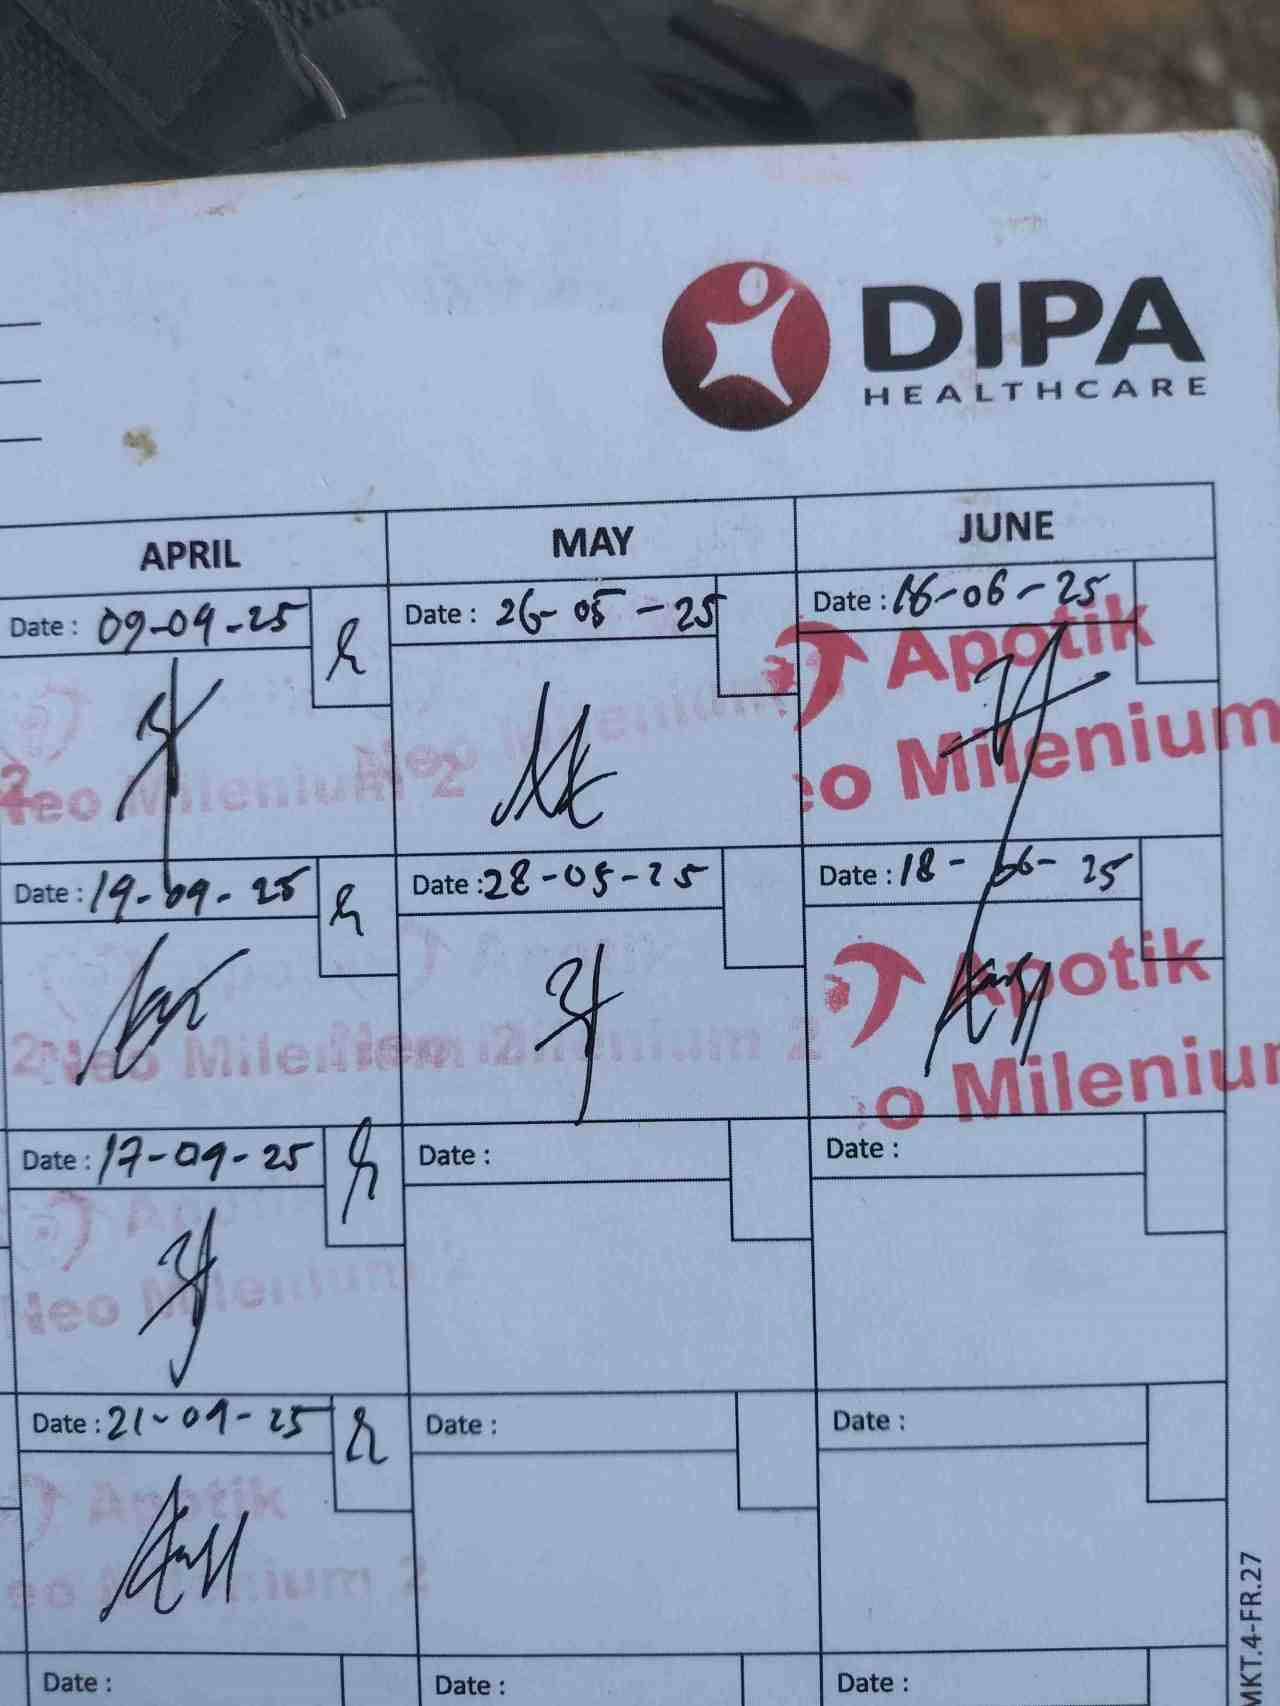 DIPA
HEALTHCARE
APRIL MAY JUNE
Date : 09-04-25 Date : 26-05-25 Date : 16-06-25
Apotik
Neo Milenium 2 Neo Milenium eo Milenium
Date : 14-04-25 Date : 28-05-25 Date : 18-06-25
Apotik Apotik
2 Neo Milenium 2 Milenium 2 o Milenium
Date : 17-04-25 Date : Date :
Apotik
Neo Milenium 2
Date : 21-04-25 Date : Date :
Apotik
eo Milenium 2
Date : Date : Date :
MKT.4-FR.27